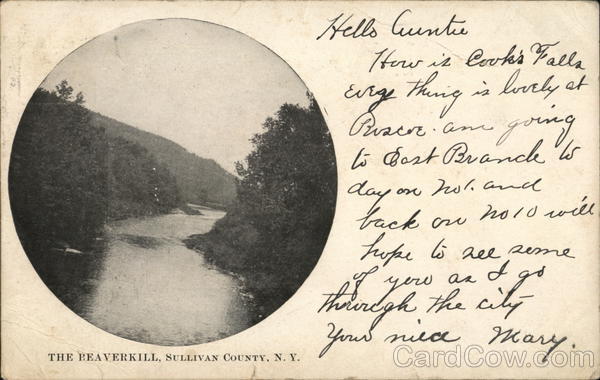 Hello Auntie
How is Cook's Falls
every thing is lovely at
Roscoe. am going
to East Branch to
day on No 1. and
back on No 10 will
hope to see some
of you as I go
through the city
Your niece Mary.
THE BEAVERKILL, SULLIVAN COUNTY, N. Y.
CardCow.com